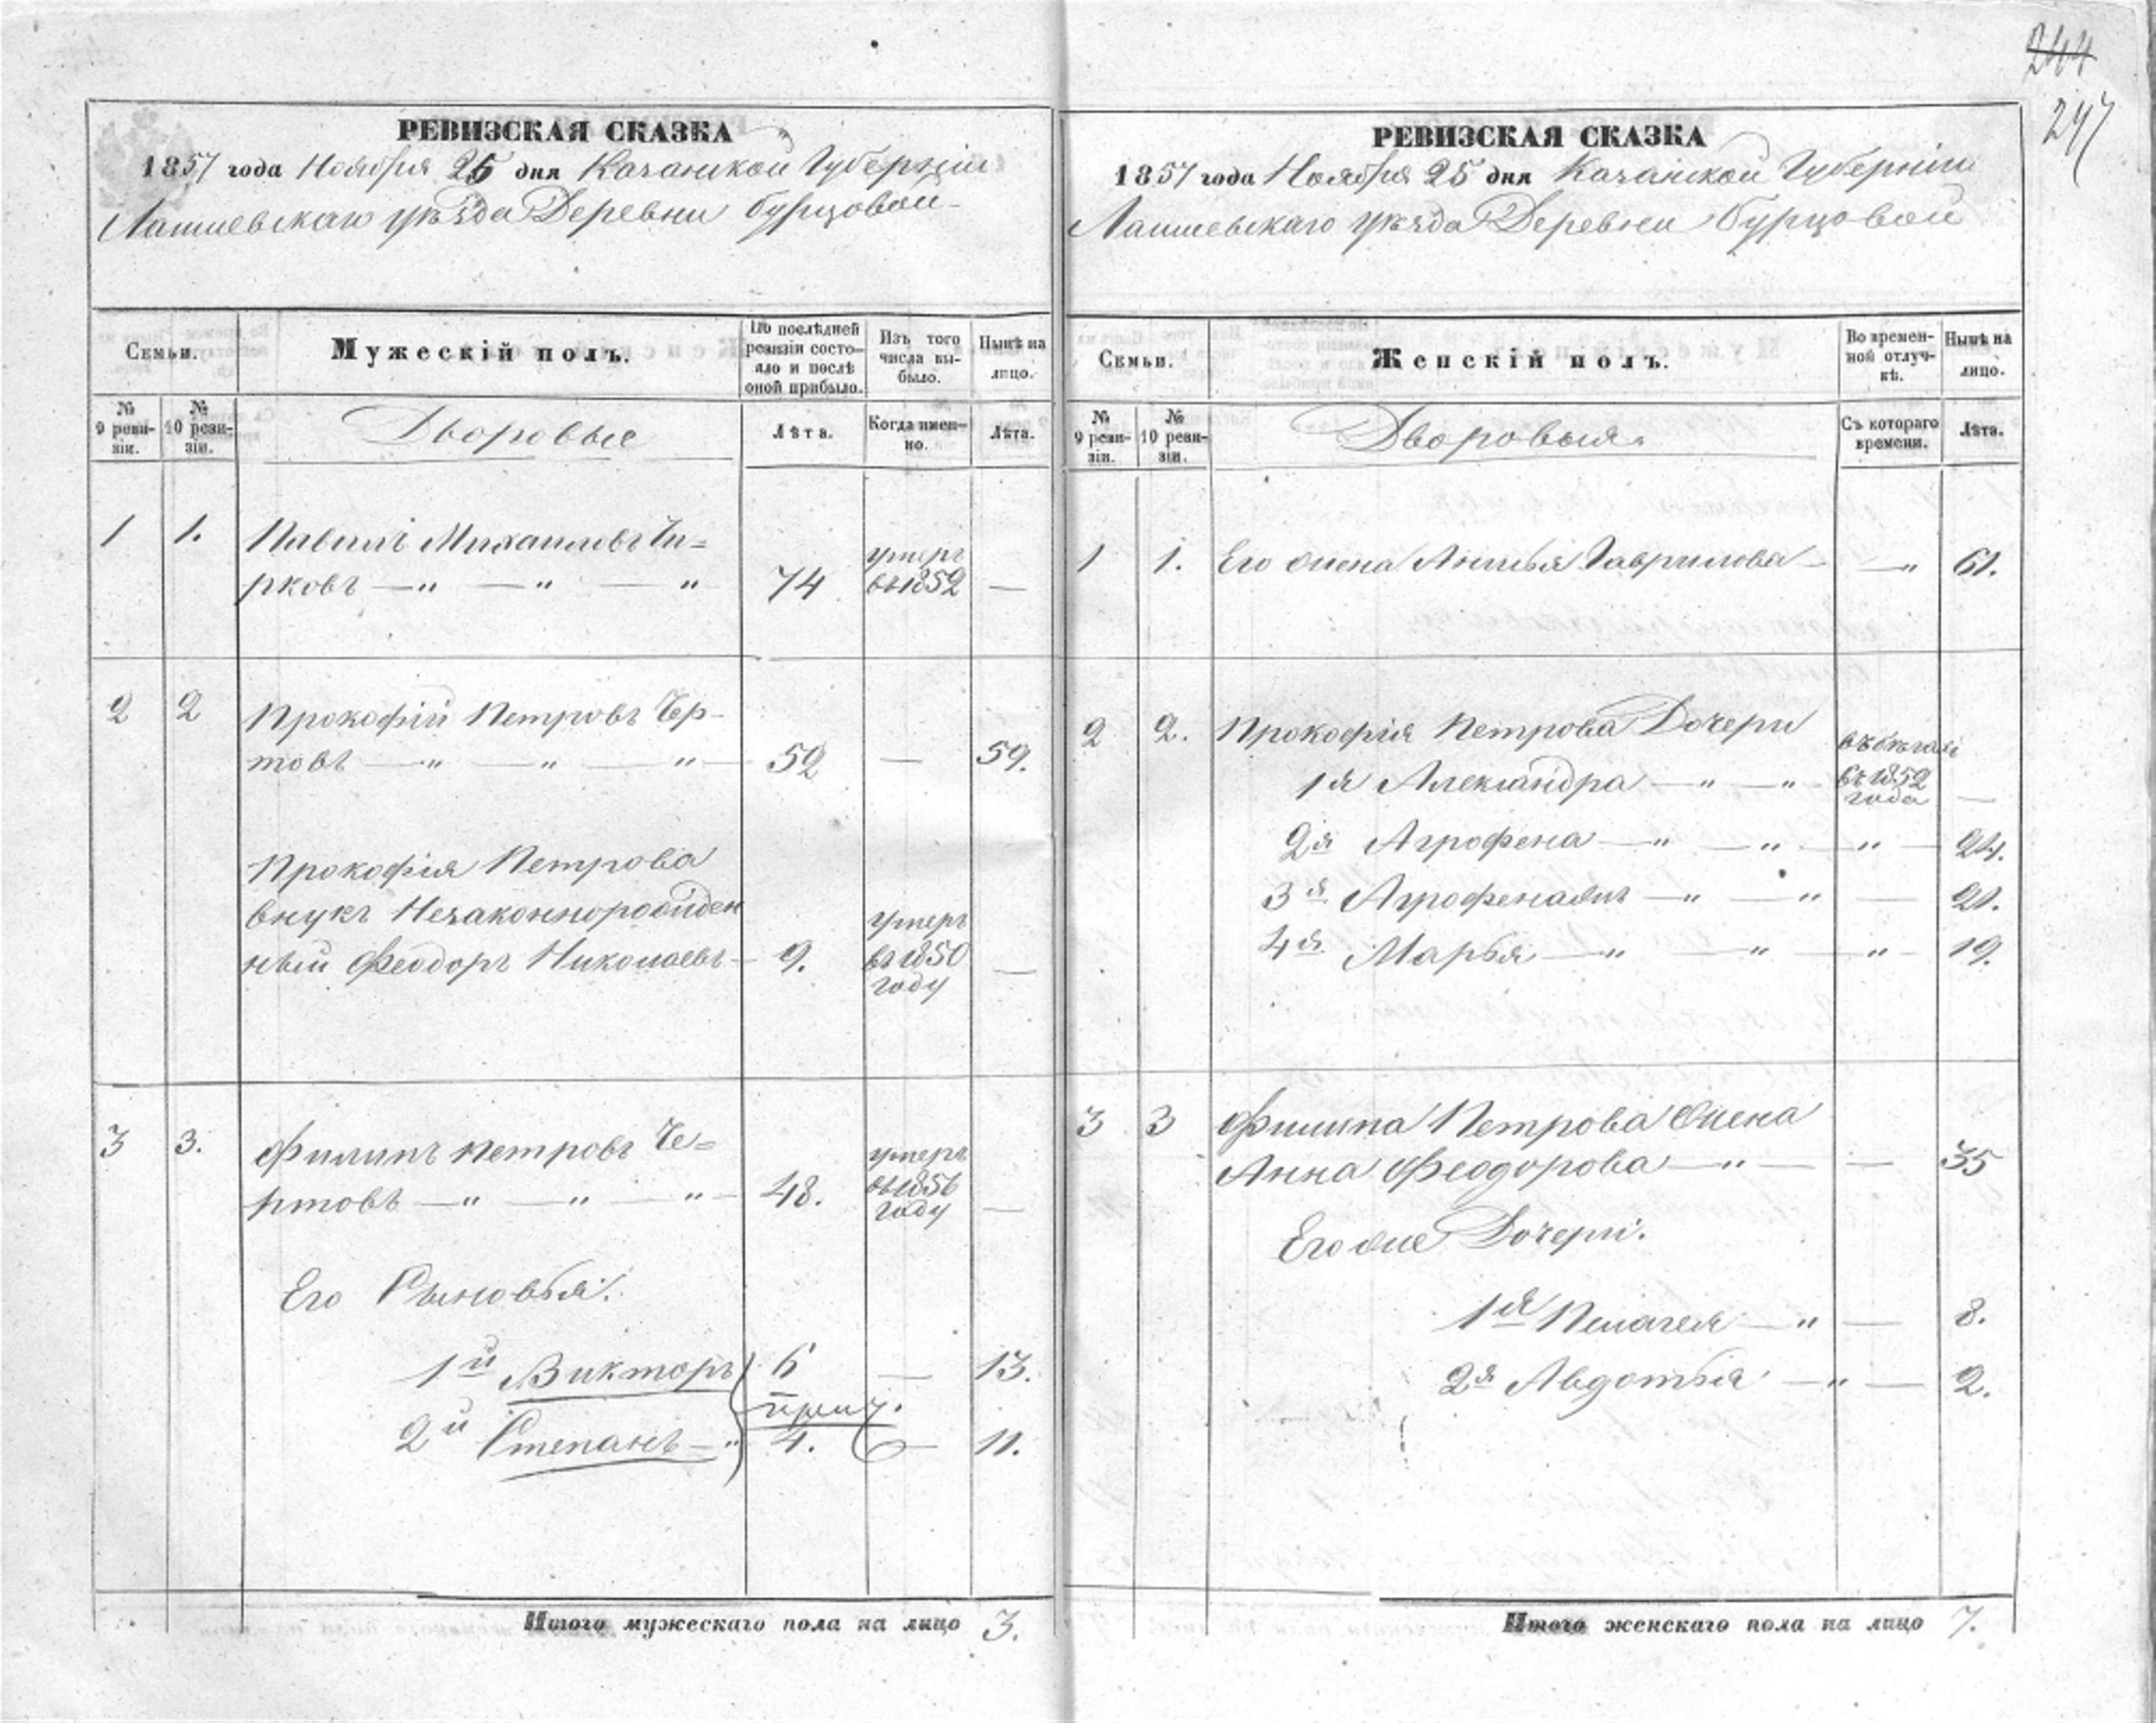 244
247
РЕВИЗСКАЯ СКАЗКА
1857 года Ноября 25 дня Казанской Губерніи
Лаишевскаго уѣзда Деревни Бурцовой
Семьи.
Мужескій полъ.
По послѣдней ревизіи состояло и послѣ оной прибыло.
Изъ того числа выбыло.
Нынѣ на лицо.
№ 9 ревизіи.
№ 10 ревизіи.
Дворовые
Лѣта.
Когда именно.
Лѣта.
1 1. Павелъ Михаиловъ
рковъ — „ — „ — „ 74 умеръ въ 1852 —
2 2 Прокофій Петровъ Чер-
товъ — „ — „ — „ — 52 — 59.
Прокофія Петрова
внукъ Незаконнорожден
ный Феодоръ Николаевъ — 9. умеръ въ 1850 году —
3 3. Филипъ Петровъ Че=
ртовъ — „ — „ — „ — 48. умеръ въ 1856 году —
Его Сыновья:
1й Викторъ 6 — 13.
2й Степанъ — „ 4. — 11.
Итого мужескаго пола на лицо 3.
РЕВИЗСКАЯ СКАЗКА
1857 года Ноября 25 дня Казанской Губерніи
Лаишевскаго уѣзда Деревни Бурцовой
Семьи.
Женскій полъ.
Во временной отлучкѣ.
Нынѣ на лицо.
№ 9 ревизіи.
№ 10 ревизіи.
Дворовыя.
Съ котораго времени.
Лѣта.
1 1. Его жена Гаврилова — — „ 61.
2 2. Прокофія Петрова Дочери
1я Александра — „ — „ — въ бѣгахъ съ 1852 года —
2я Агрофена — „ — „ — „ — 24.
3я Агрофена — „ — „ — 21.
4я Марья — „ — „ — „ — 19.
3 3 Филипа Петрова жена
Анна Феодорова — „ — — 35
Его же Дочери.
1я Пелагея — „ — 8.
2я Авдотья — „ — 2.
Итого женскаго пола на лицо 7.